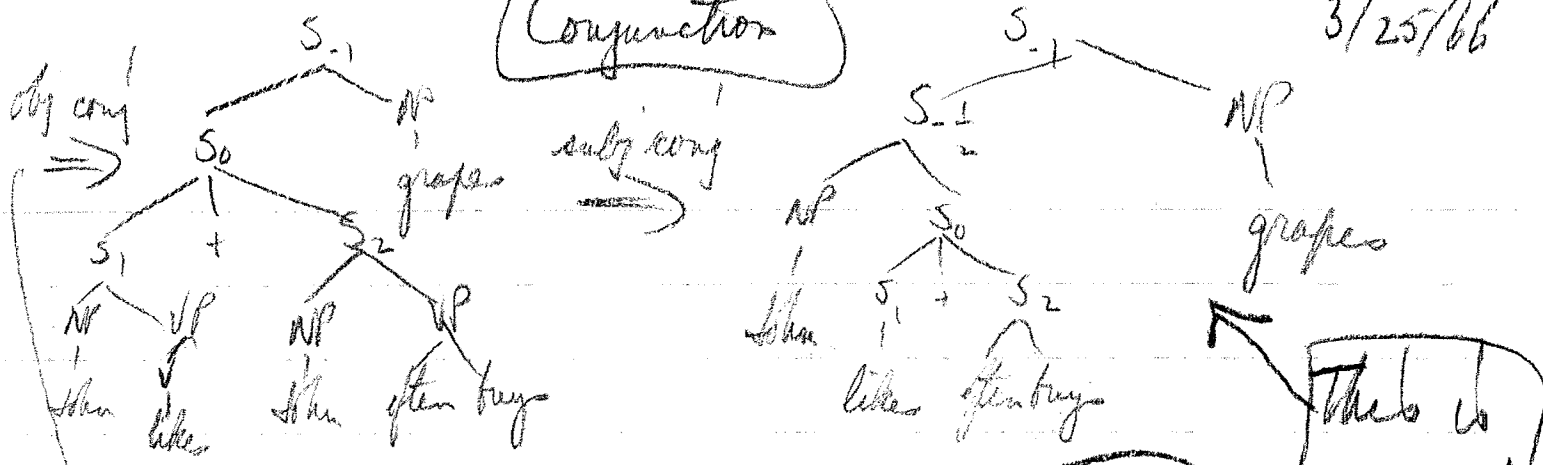 Conjunction
3/25/66
obj conj
⇒
S-1
S0
NP
grapes
S1 + S2
NP VP NP VP
John likes John often buys
subj conj
⇒
S-1
S-1/2
NP
NP
S0
grapes
John
S1 + S2
likes often buys
This is